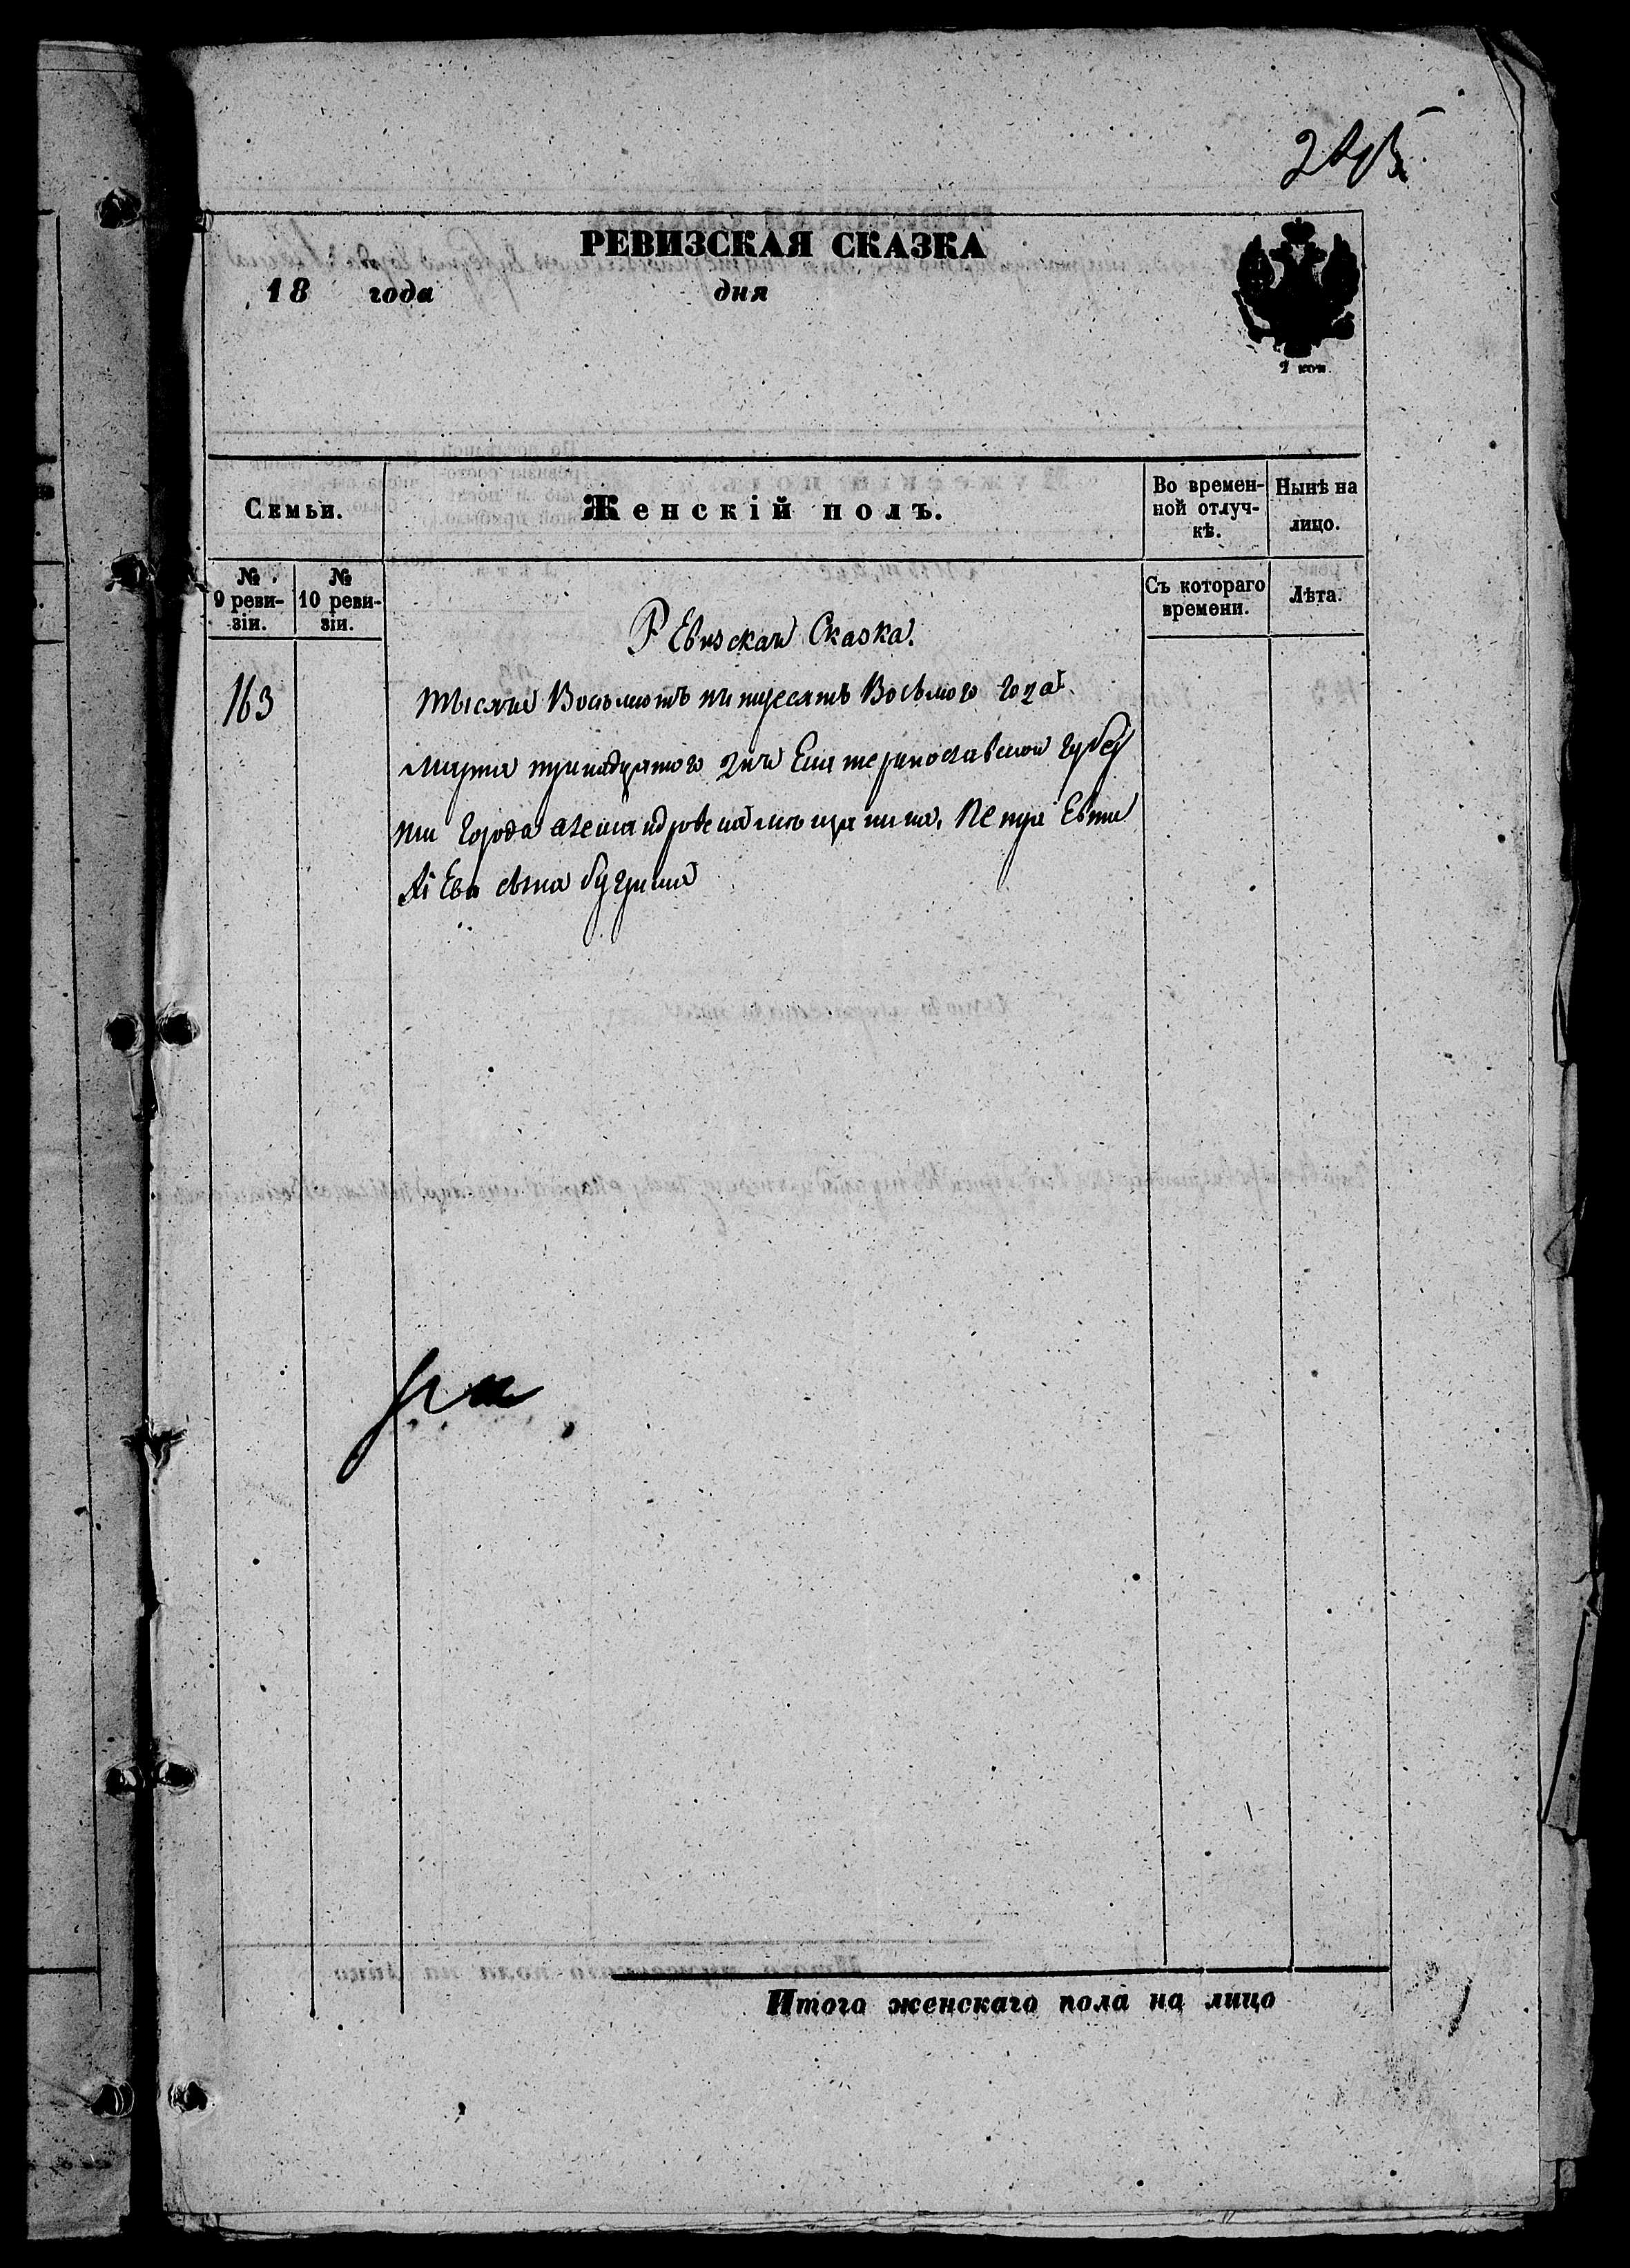 РЕВИЗСКАЯ СКАЗКА
18 года дня
2 коп.
Семьи.
Женскій полъ.
Во времен-
ной отлуч-
кѣ.
Нынѣ на
лицо.
№
9 реви-
зіи.
№
10 реви-
зіи.
Съ котораго
времени.
Лѣта.
Ревизская Сказка.
163
тысяча Восьмотъ пятдесятъ Восьмого года
марта тринадцатого дня Екатеринославской губер
ніи города александровска мещанина Петра Евти
хіева сына
Итого женскаго пола на лицо